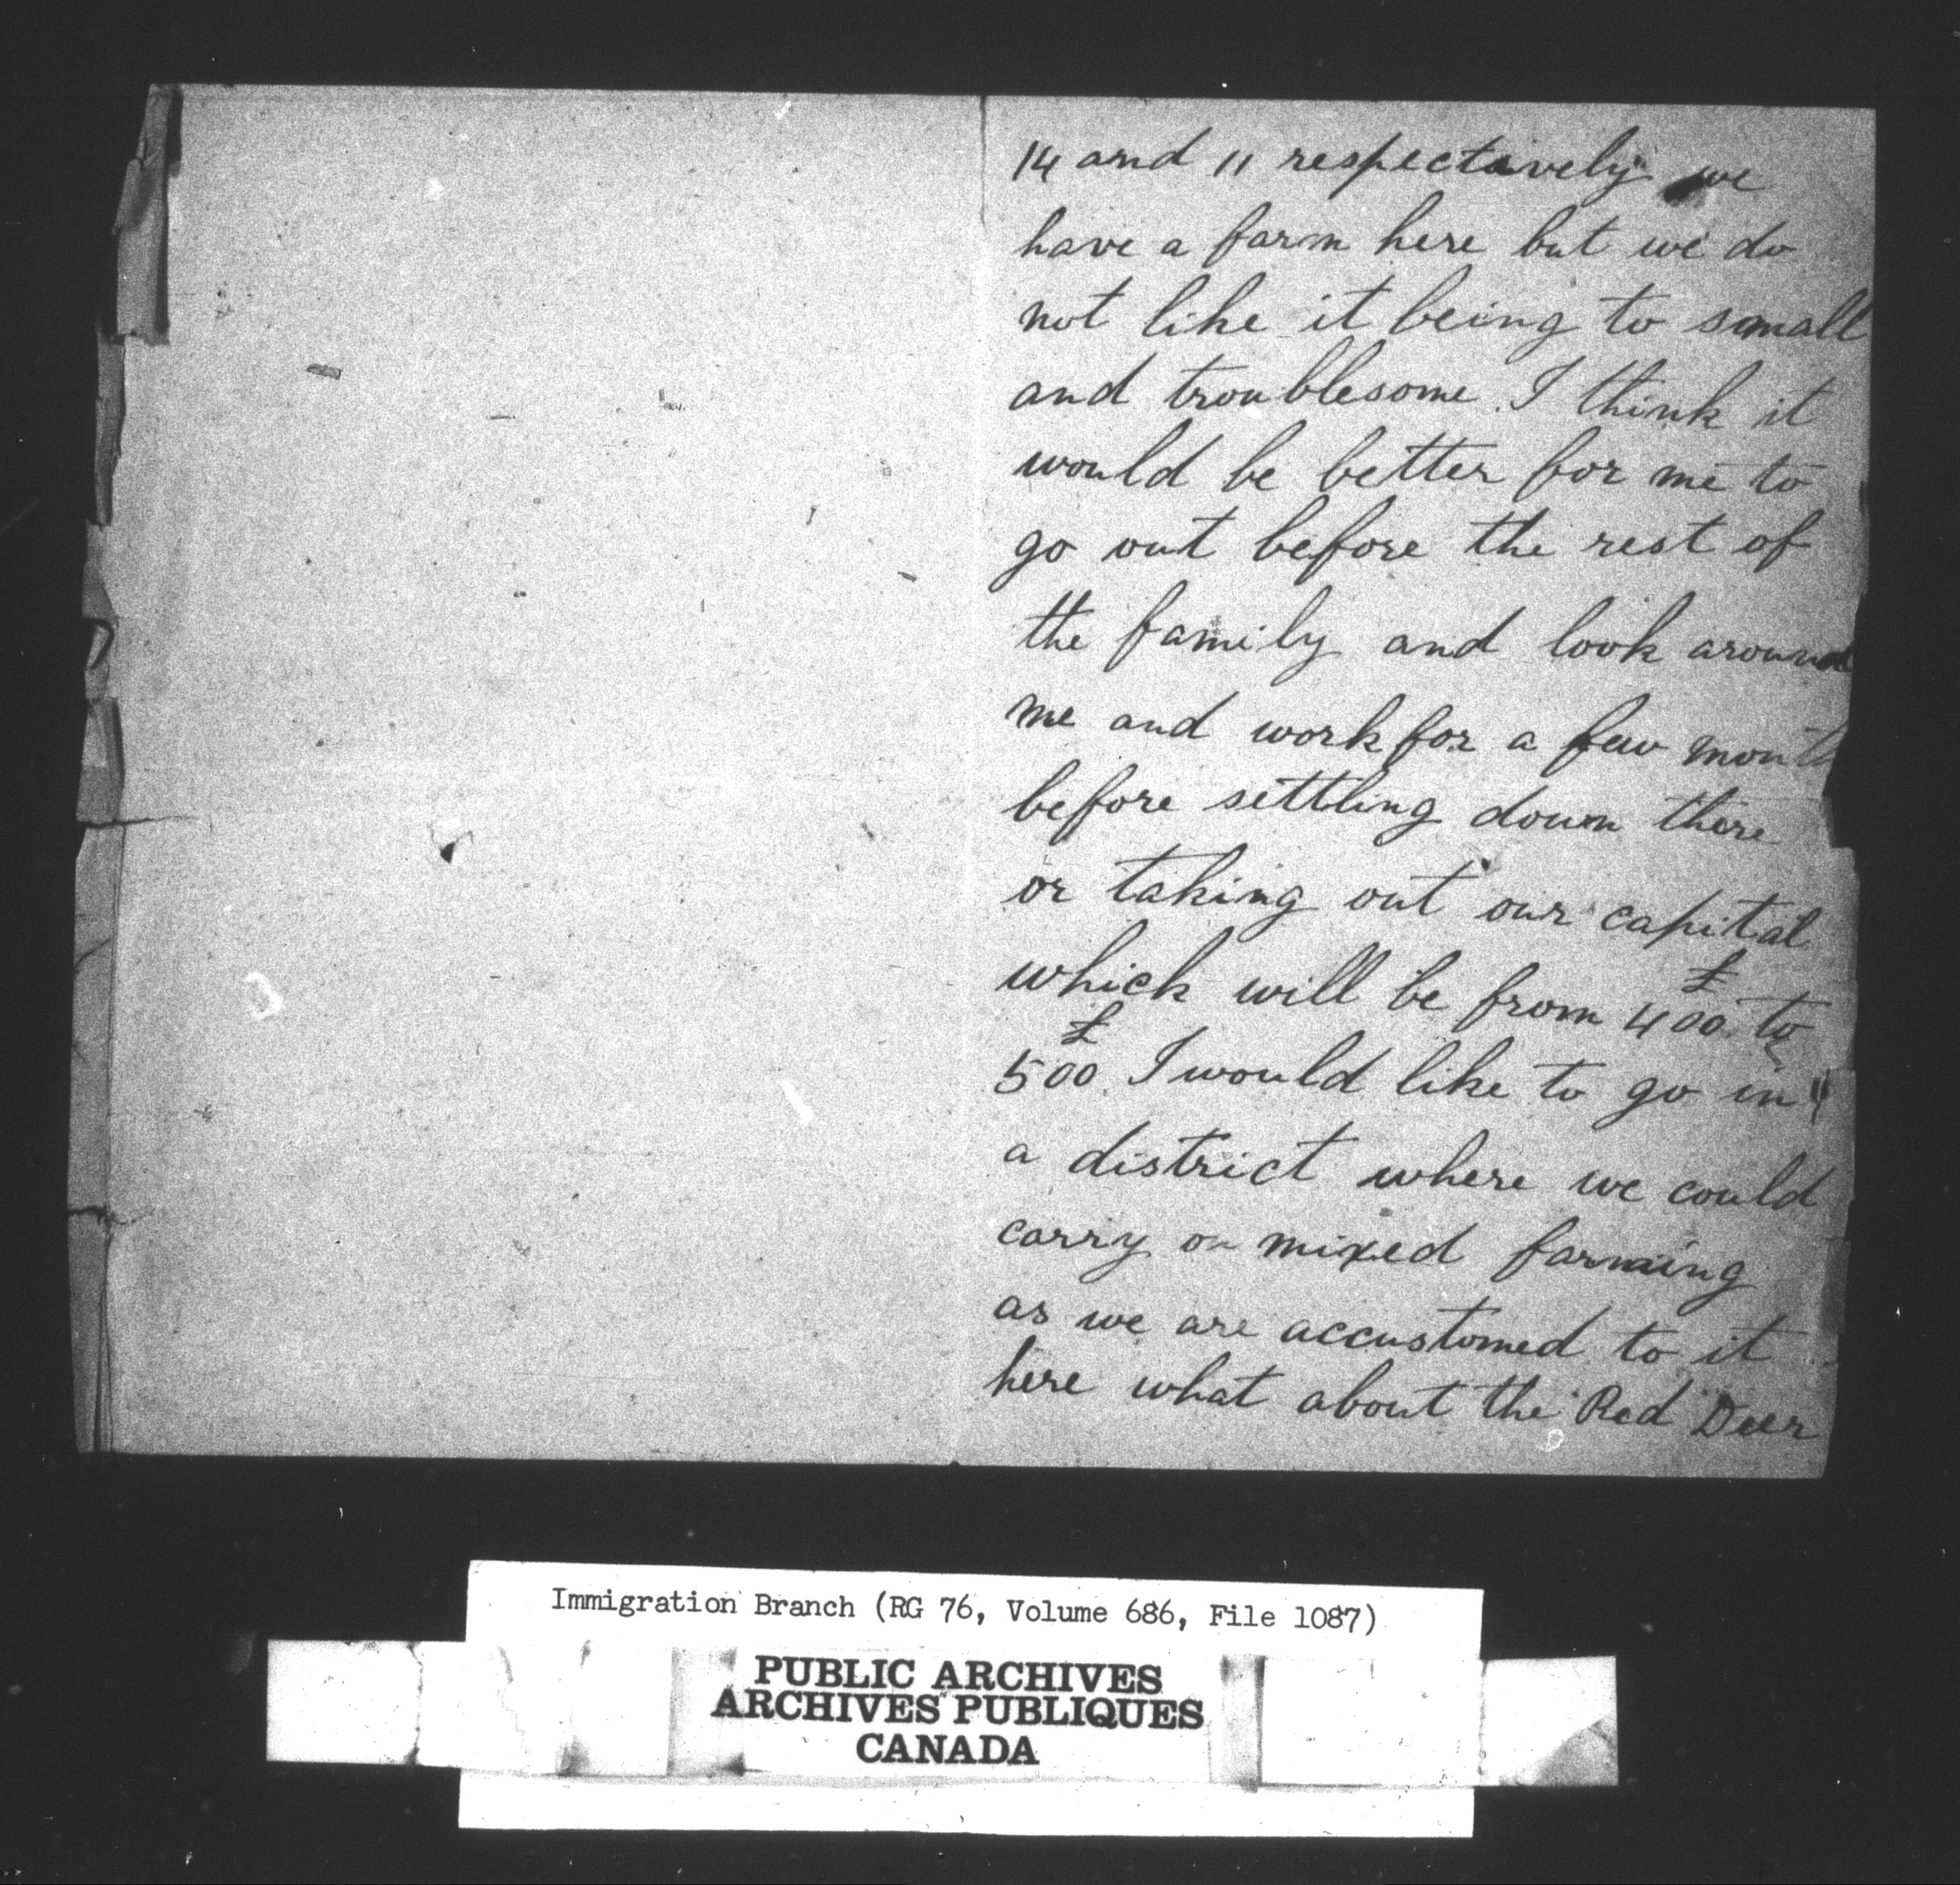 14 and 11 respectively we
have a farm here but we do
not like it being to small
and troublesome. I think it
would be better for me to
go out before the rest of
the family and look around
me and work for a few month
before settling down there
or taking out our capital
which will be from 400£ to
500£. I would like to go in
a district where we could
carry on mixed farming
as we are accustomed to it
here what about the Red Deer
Immigration Branch (RG 76, Volume 686, File 1087)
PUBLIC ARCHIVES
ARCHIVES PUBLIQUES
CANADA